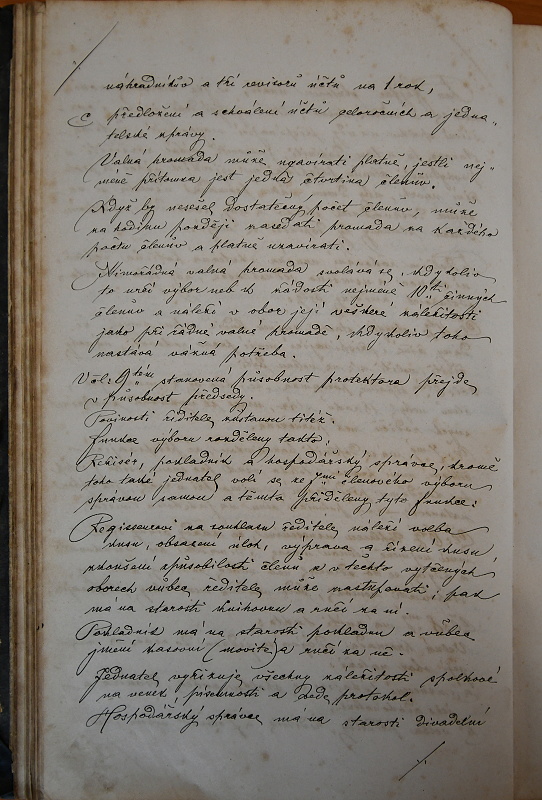 náhradníkův a tří revisorů účtů na 1 rok,
c předložení a schválení účtů celoročních a jedna„
telské zprávy.
Valná hromada může uzavírati platně, jestli nej„
méně přítomna jest jedna čtvrtina členův.
Když by nesešel dostatečný počet členův, může
na hodinu později zasedati hromada za každého
počtu členův a platně uzavírati.
Mimořádná valná hromada svolává se, kdykoliv
to určí výbor neb k žádosti nejméně 10ti činných
členův a náleží v obor její veškeré náležitosti
jako při řádné valné hromadě, kdykoliv toho
nastává vážná potřeba.
V čl: 9tém stanovená působnost protektora přejde
v působnost předsedy.
Povinosti ředitele zůstanou titéž.
Funkce výboru rozděleny takto:
Režisér, pokladník a hospodářský správce, kromě
toho také jednatel volí se ze členového výboru
správou samou a těmto přiděleny tyto funkce:
Regisseurovi za souhlasu ředitele náleží volba
kusu, obsazení úloh, výprava a řízení kusu,
zkoušení způsobilosti členů a v těchto vytčených
oborech vůbec ředitele může nastupovati; pak
má na starosti knihovnu a ručí za ni.
Pokladník má na starosti pokladnu a vůbec
jmění kasovní (movité) a ručí za ně.
Jednatel vyřizuje všechny náležitosti spolkové
na venek, písemnosti a vede protokol.
Hospodářský správce má na starosti divadelní